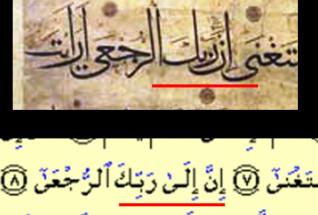 تغنى إن ربك الرجعى أرايت
تَغْنَىٰٓ ٧ إِنَّ إِلَىٰ رَبِّكَ ٱلرُّجْعَىٰٓ ٨